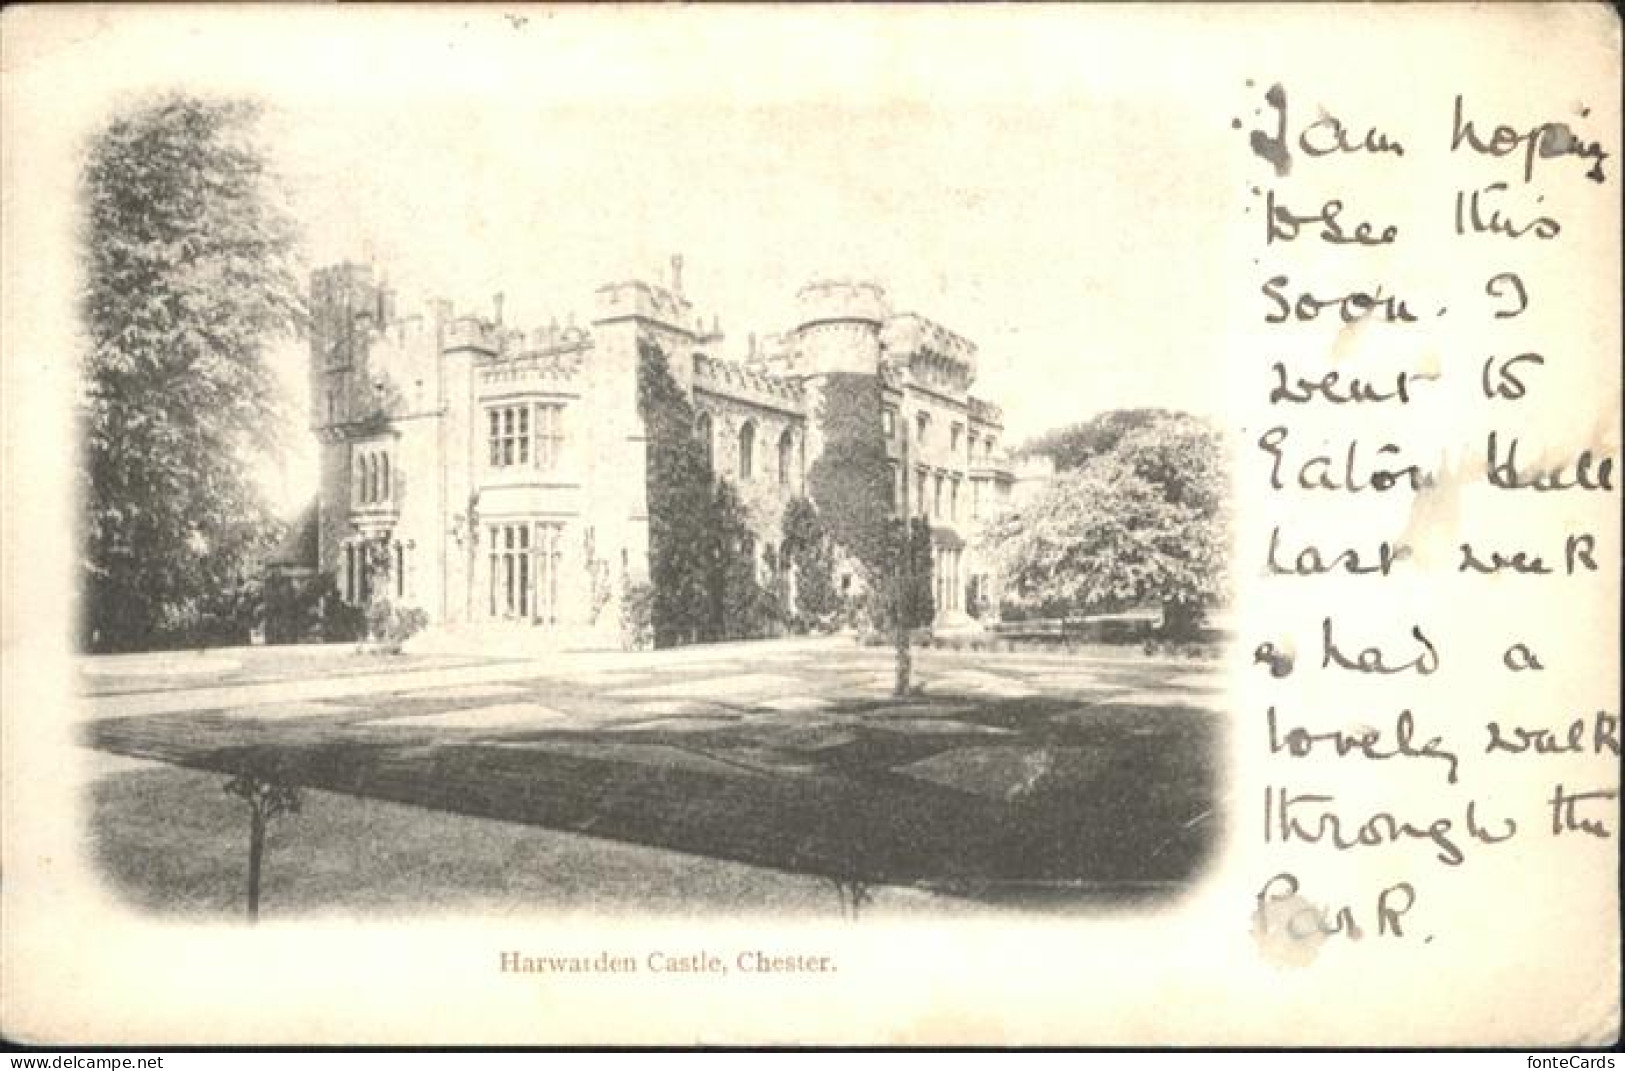 I am hoping
to see this
soon. I
went to
Eaton Hall
last week
& had a
lovely walk
through the
Park.
Harwarden Castle, Chester.
https://www.delcampe.net
fonteCards